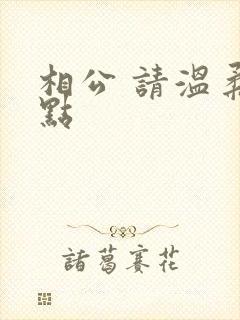 相公 請溫柔
點
諸葛賽花